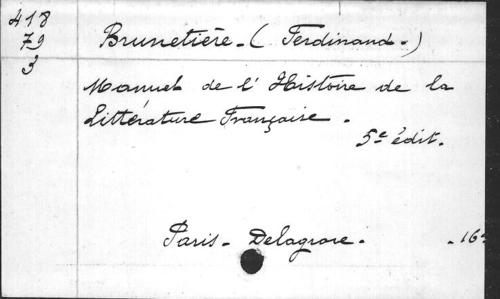 418
79
3
Brunetière - ( Ferdinand - )
Manuel de l'Histoire de la
Littérature Française .
5e édit.
Paris - Delagrave - - 16º